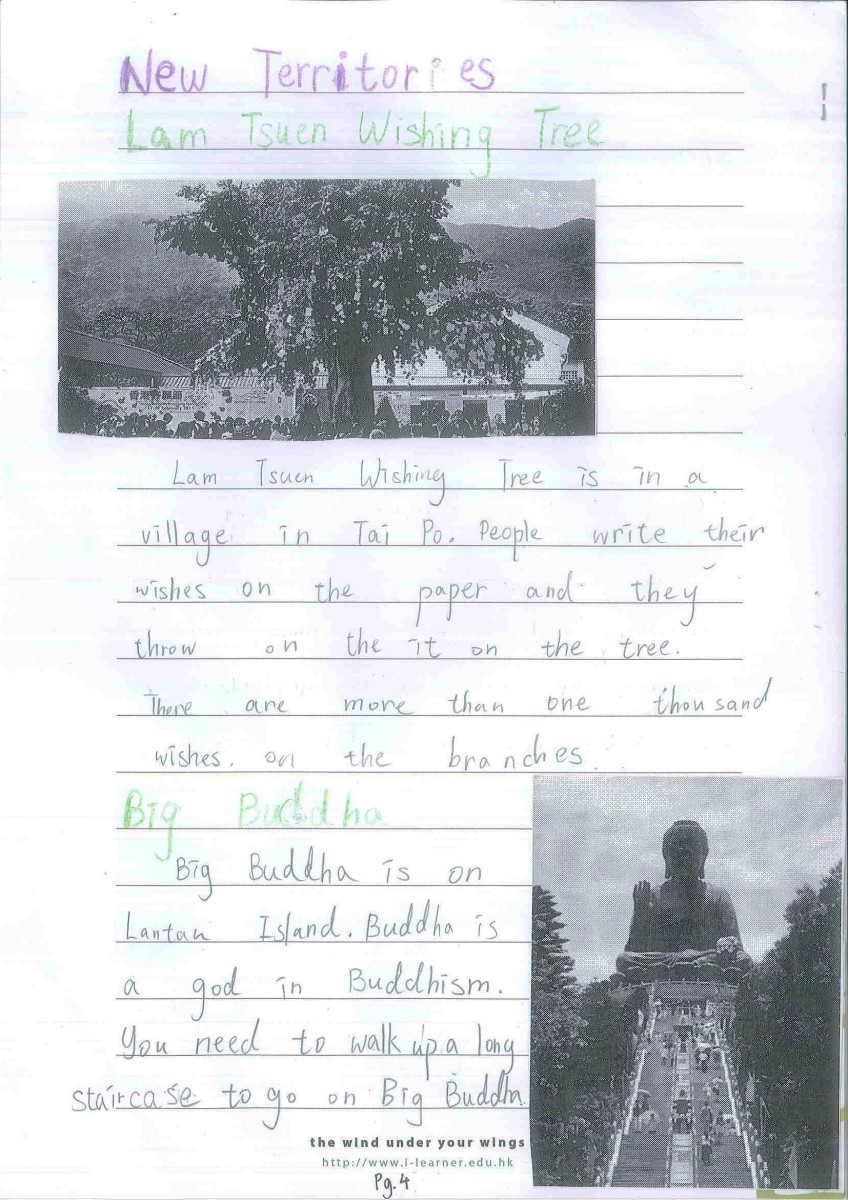 New Territories
Lam Tsuen Wishing Tree
Lam Tsuen Wishing Tree is in a
village in Tai Po. People write their
wishes on the paper and they
throw on the it on the tree.
There are more than one thousand
wishes. on the branches.
Big Buddha
Big Buddha is on
Lantau Island. Buddha is
a god in Buddhism.
You need to walk up a long
staircase to go on Big Buddha.
the wind under your wings
http://www.i-learner.edu.hk
Pg.4